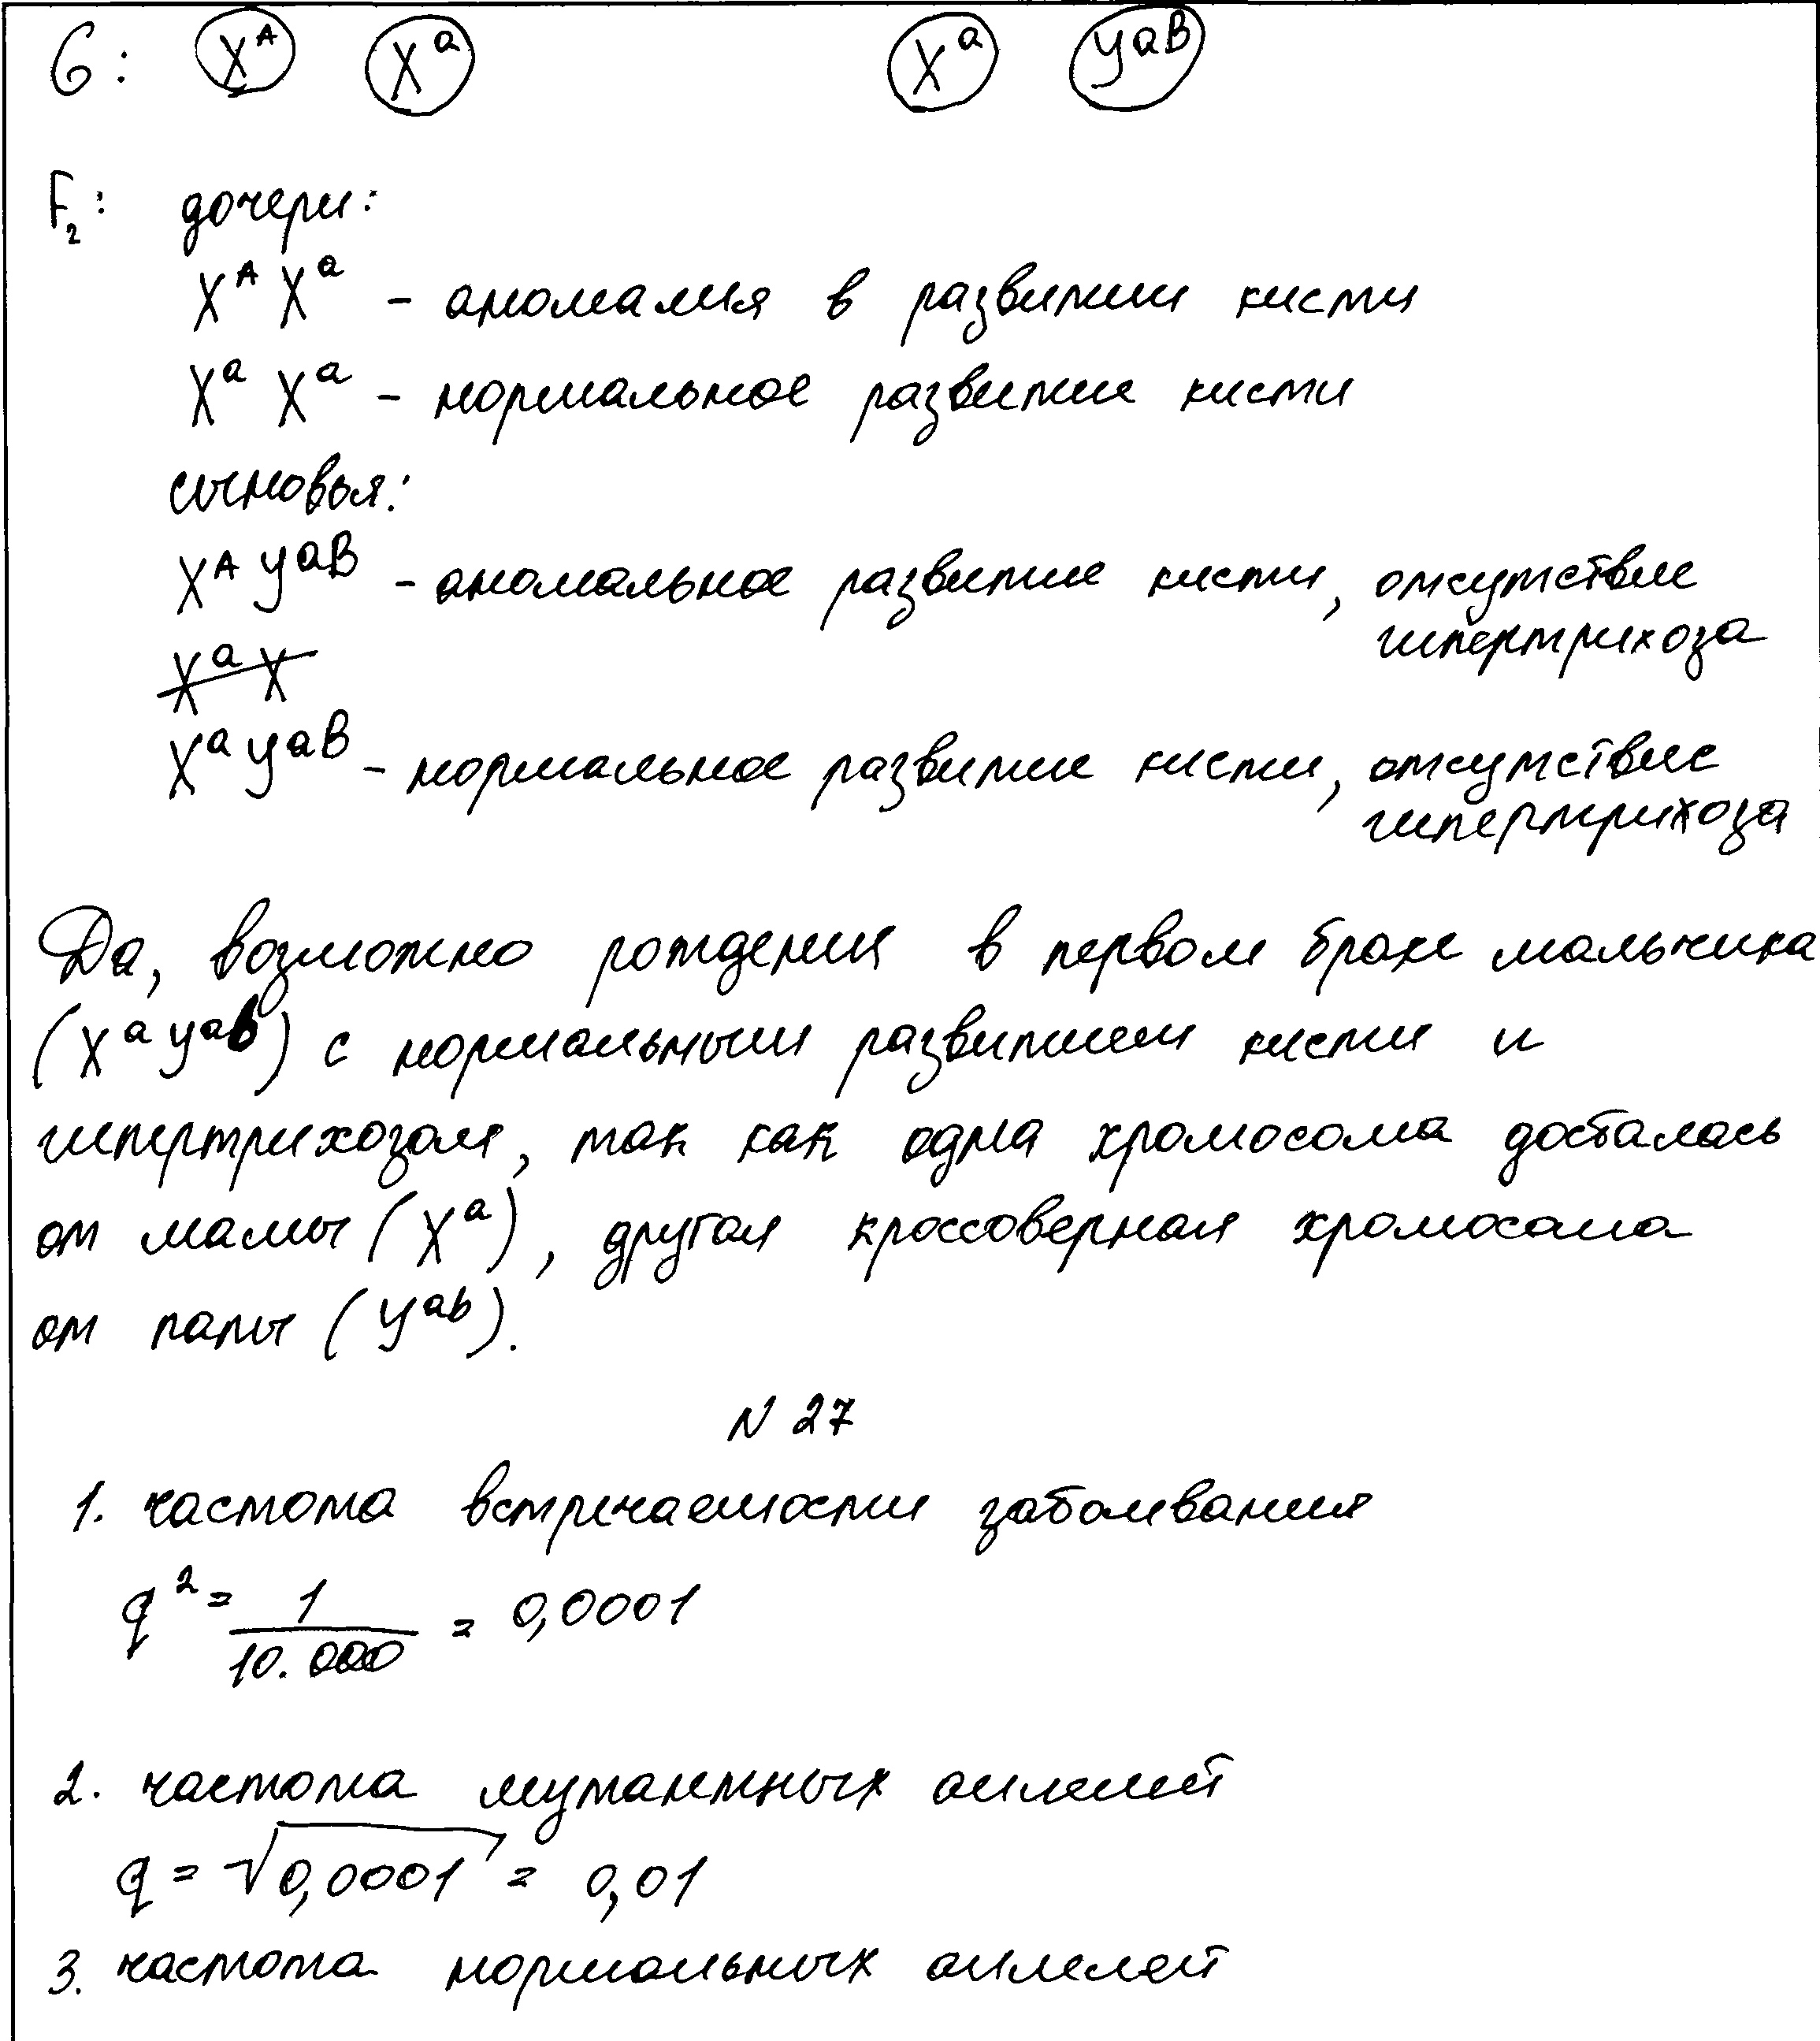 G: X^A X^a X^a Y^aB
F₂: дочери:
X^A X^a - аномалия в развитии кисти
X^a X^a - нормальное развитие кисти
сыновья:
X^A Y^aB - аномальное развитие кисти, отсутствие
гипертрихоза
X^a X
X^a Y^aB - нормальное развитие кисти, отсутствие
гипертрихоза
Да, возможно рождения в первом браке мальчика
(X^a Y^ab) с нормальным развитием кисти и
гипертрихозом, так как одна хромосома досталась
от мамы (X^a), другая кроссоверная хромосома
от папы (Y^ab).
N 27
1. частота встречаемости заболевания
q² = 1/10.000 = 0,0001
2. частота мутантных аллелей
q = √0,0001 = 0,01
3. частота нормальных аллелей